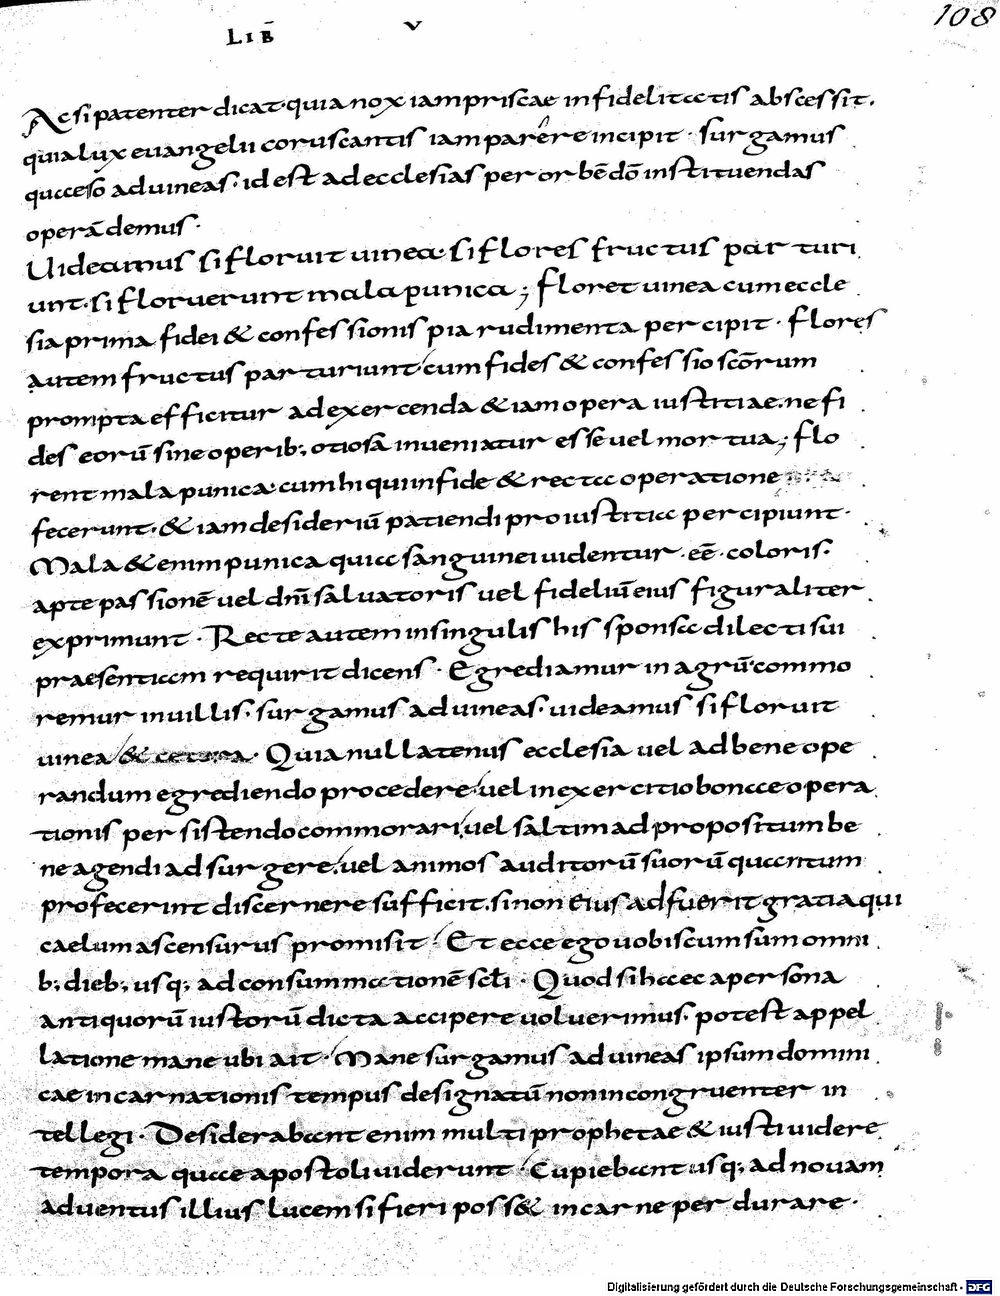 LIB̄ V
108
Ac si patenter dicat quia nox iam priscae infidelitatis abscessit.
quia lux euangelii coruscantis iam parêre incipit · surgamus
quaeso ad uineas · id est ad ecclesias per orbē dō instituendas
operā demus ·
Uideamus si floruit uinea · si flores fructus parturi
unt · si floruerunt mala punica ; floret uinea cum eccle
sia prima fidei & confessionis pia rudimenta percipit · flores
autem fructus parturiunt cum fides & confessio scōrum
prompta efficitur ad exercenda & iam opera iustitiae · ne fi
des eorū sine operib; otiosa inueniatur esse uel mortua ; flo
rent mala punica cum hi qui in fide & recta operatione
fecerunt · & iam desideriū patiendi pro iustitia percipiunt ·
Mala & enim punica quia sanguinei uidentur · eē · coloris ·
apte passionē uel dnī saluatoris uel fideliū eius figuraliter
exprimunt · Recte autem in singulis his sponsa dilecti sui
praesentiam requirit dicens · Egrediamur in agrū commo
remur in uillis · surgamus ad uineas · uideamus si floruit
uinea & cetera · Quia nullatenus ecclesia uel ad bene ope
randum egrediendo procedere uel in exercitio bonae opera
tionis persistendo commorari uel saltim ad propositum be
ne agendi adsurgere · uel animos auditorū suorū quantum
profecerint discernere sufficit · si non eius adfuerit gratia qui
caelum ascensurus promisit · Et ecce ego uobiscum sum omni
b; dieb; usq; ad consummationē scłi · Quod si haec a persona
antiquorū iustorū dicta accipere uoluerimus · potest appel
latione mane ubi ait · Mane surgamus ad uineas ipsum domini
cae incarnationis tempus designatū non incongruenter in
tellegi · Desiderabant enim multi prophetae & iusti uidere
tempora quae apostoli uiderunt · Cupiebant usq; ad nouam
aduentus illius lucem si fieri poss& in carne perdurare ·
Digitalisierung gefördert durch die Deutsche Forschungsgemeinschaft - DFG